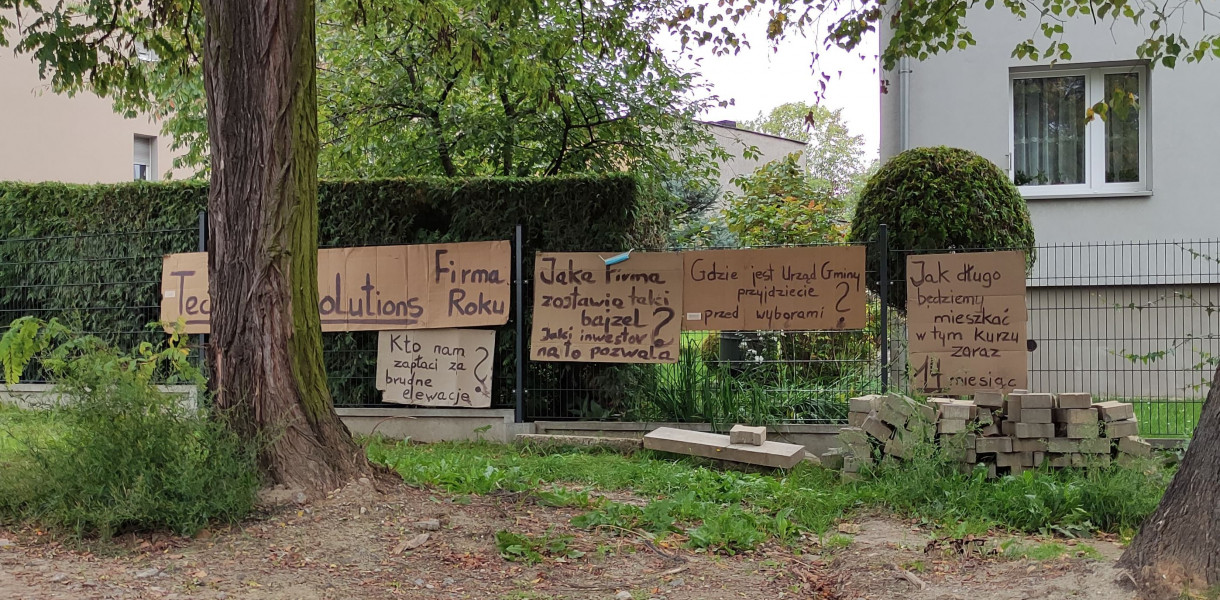 Tec olutions Firma
Roku
Kto nam
zapłaci za
brudne ?
elewacje
Jaka Firma
zostawia taki
bajzel ?
Jaki inwestor
na to pozwala
Gdzie jest Urząd Gminy
przyjdziecie ?
przed wyborami
Jak długo
będziemy
mieszkać
w tym kurzu
zaraz
14 miesiąc